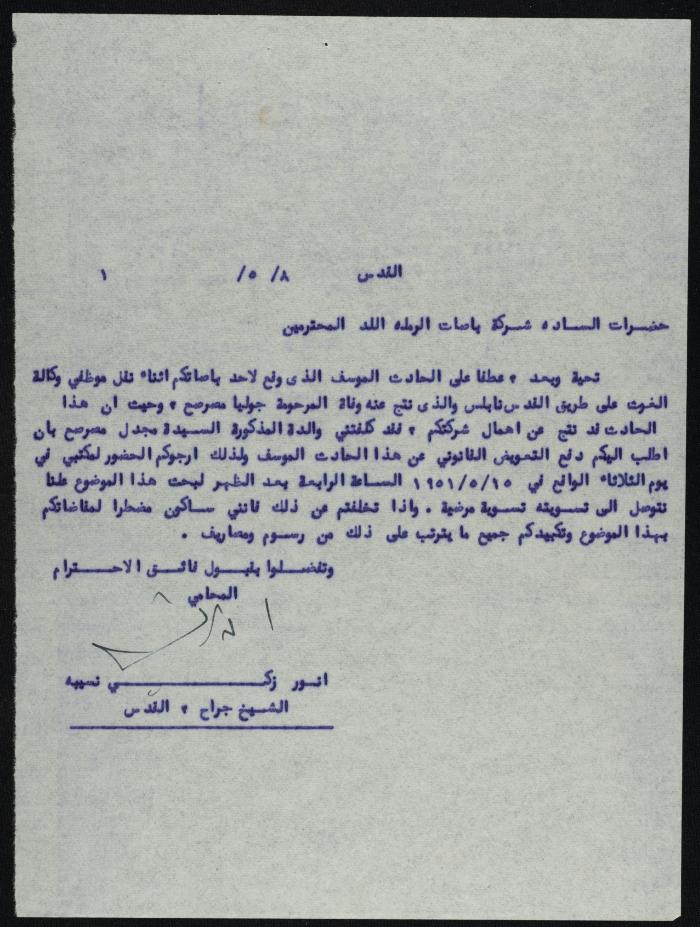 القدس ٨/ ٥/ ١
حضرات الساده شركة باصات الرمله اللد المحترمين
تحية وبعد ، عطفا على الحادث الموسف الذى وقع لاحد باصاتكم اثناء نقل موظفي وكالة
الغوث على طريق القدس نابلس والذى نتج عنه وفاة المرحومة جوليا مصرصع ، وحيث ان هذا
الحادث قد نتج عن اهمال شركتكم ، فقد كلفتني والدة المذكورة السيدة مجدل مصرصع بان
اطلب اليكم دفع التعويض القانوني عن هذا الحادث الموسف ولذلك ارجوكم الحضور لمكتبي في
يوم الثلاثاء الواقع في ١٩٥١/٥/١٥ الساعة الرابعة بعد الظهر لبحث هذا الموضوع علنا
نتوصل الى تسويته تسوية مرضية . واذا تخلفتم عن ذلك فانني ساكون مضطرا لمقاضاتكم
بهذا الموضوع وتكبيدكم جميع ما يترتب على ذلك من رسوم ومصاريف .
وتفضلوا بقبول فائق الاحترام
المحامي
انور زكي نسيبه
الشيخ جراح ، القدس